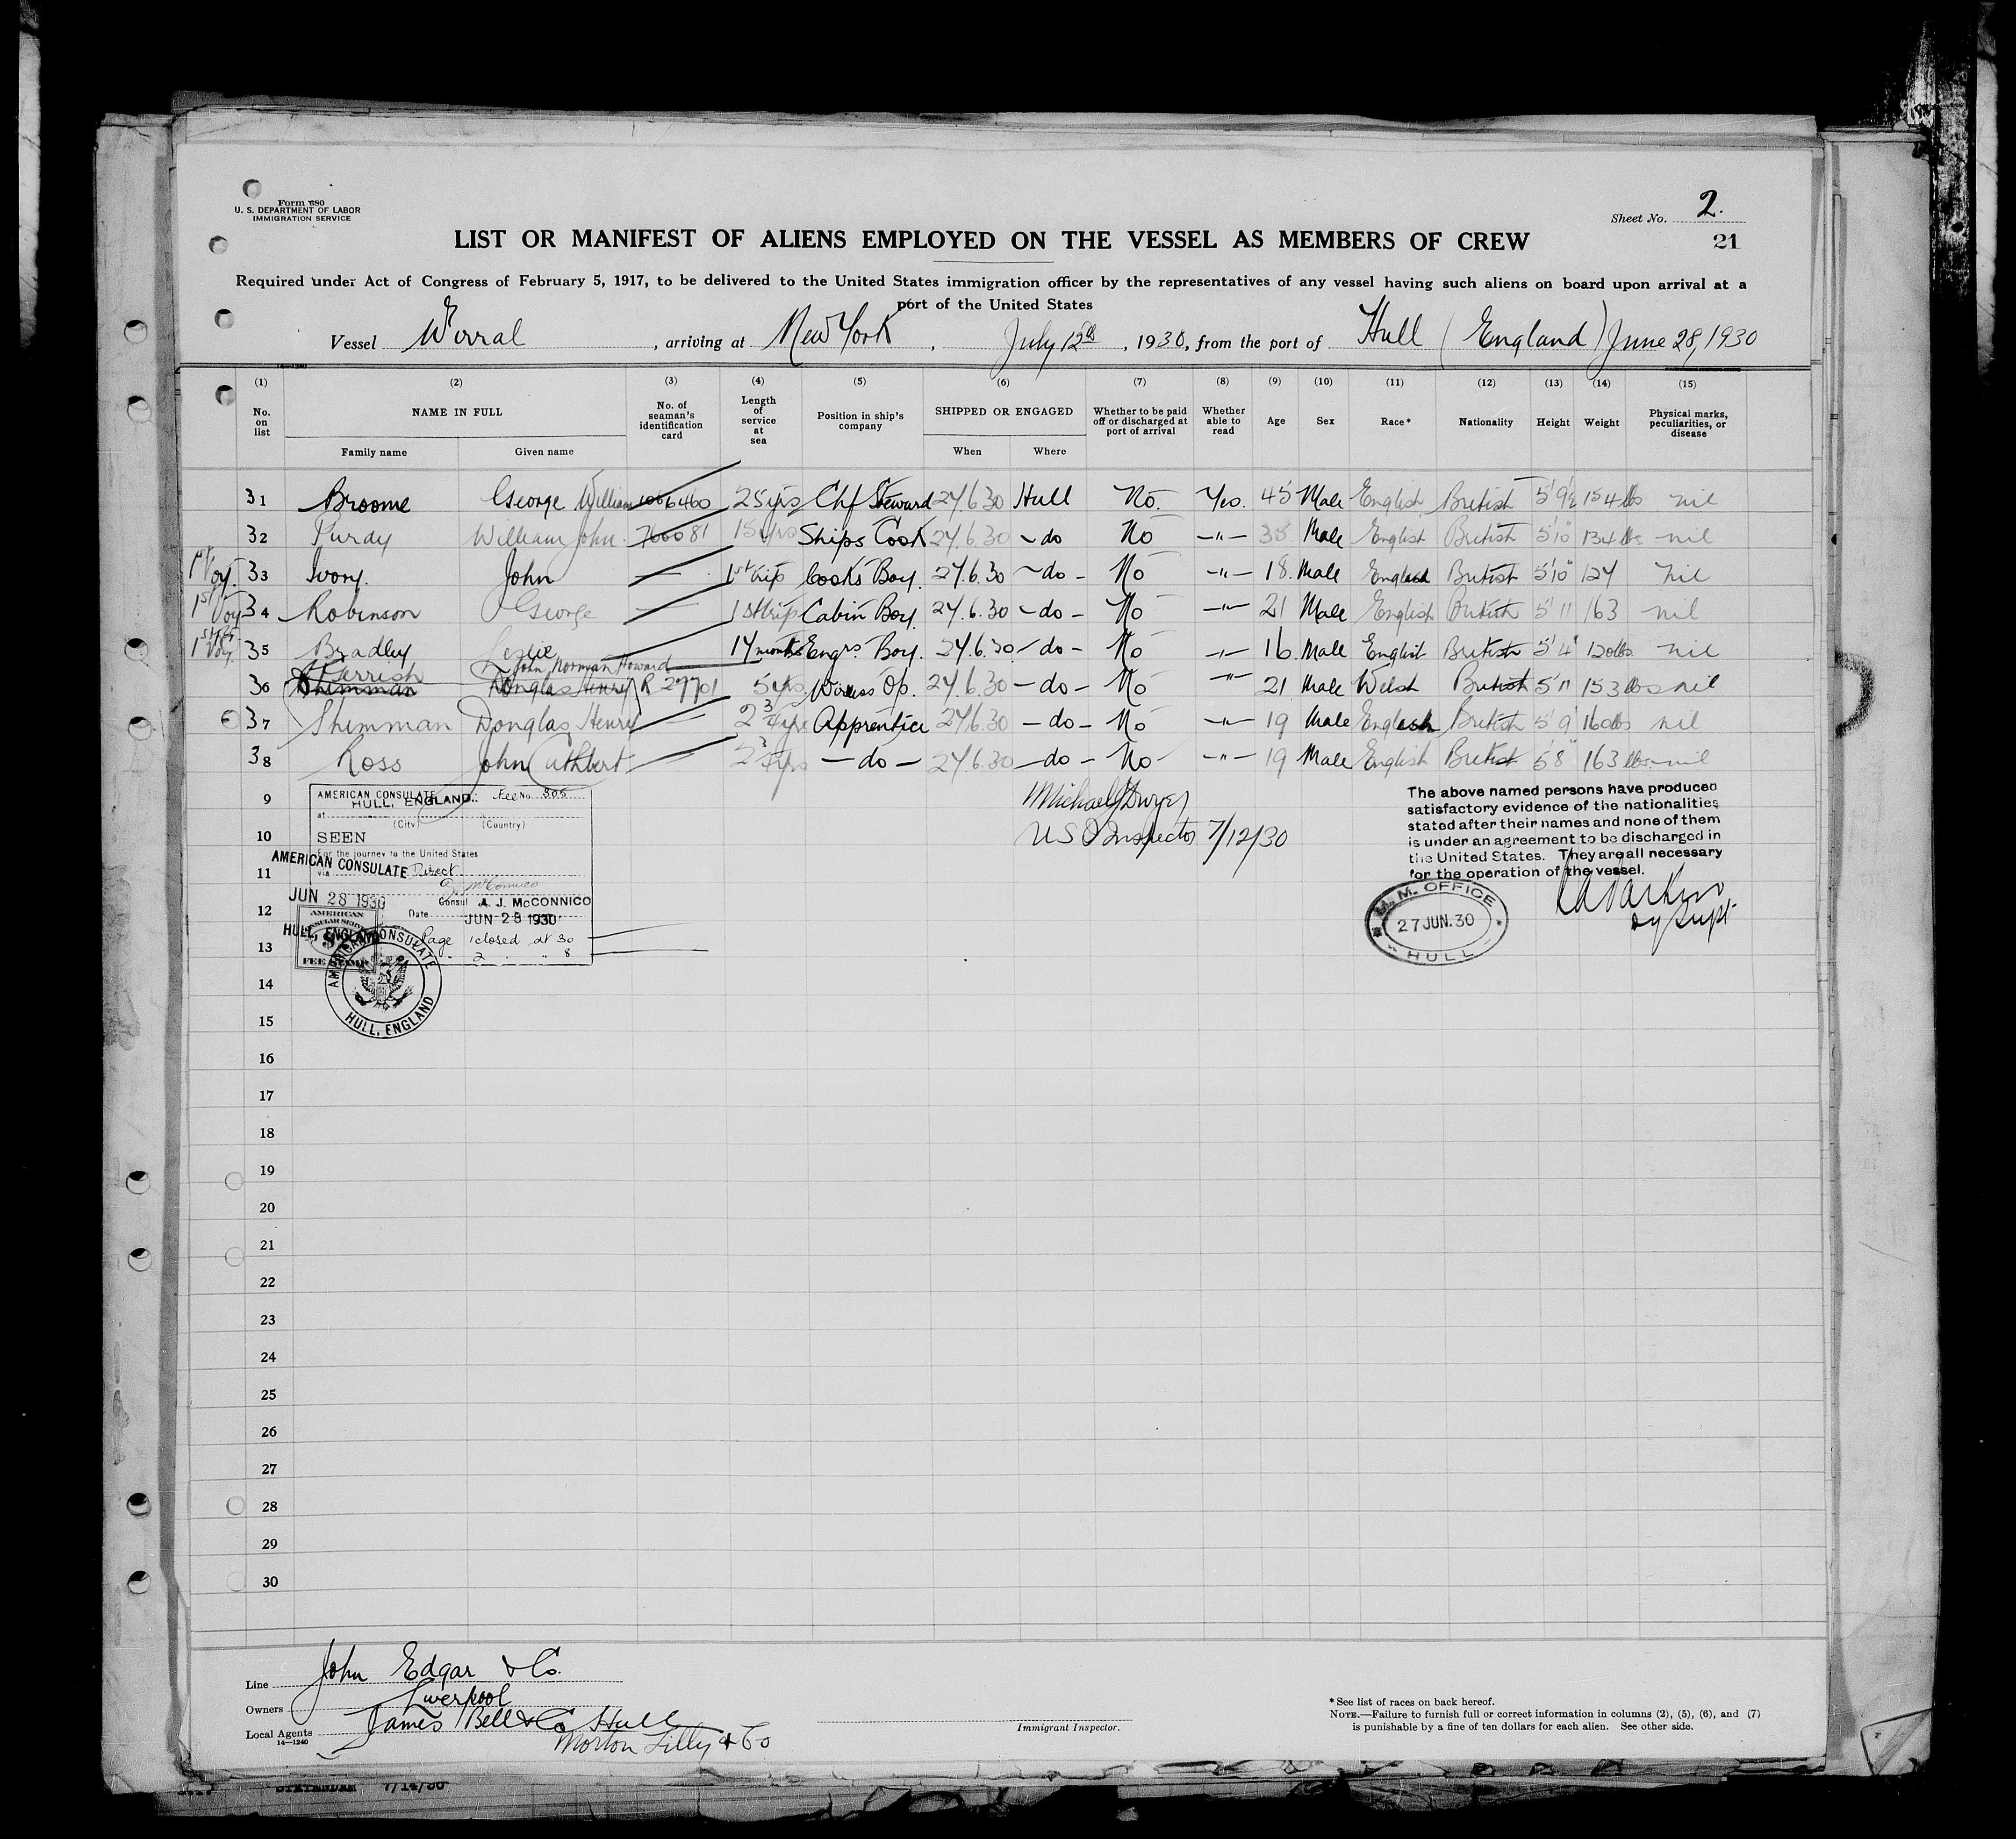 Form 680
U. S. DEPARTMENT OF LABOR
IMMIGRATION SERVICE
Sheet No. 2.
21
LIST OR MANIFEST OF ALIENS EMPLOYED ON THE VESSEL AS MEMBERS OF CREW
Required under Act of Congress of February 5, 1917, to be delivered to the United States immigration officer by the representatives of any vessel having such aliens on board upon arrival at a
port of the United States
Vessel Wirral, arriving at New York, July 12th, 1930, from the port of Hull (England) June 28, 1930
(1) (2) (3) (4) (5) (6) (7) (8) (9) (10) (11) (12) (13) (14) (15)
No. on list NAME IN FULL No. of seaman's identification card Length of service at sea Position in ship's company SHIPPED OR ENGAGED Whether to be paid off or discharged at port of arrival Whether able to read Age Sex Race* Nationality Height Weight Physical marks, peculiarities, or disease
Family name Given name When Where
31 Broome George William 1066460 25 yrs Chf Steward 27.6.30 Hull No. Yes. 45 Male English British 5'9½ 154 lbs nil
32 Purdy William John 760081 15 yrs Ships Cook 27.6.30 - do No -"- 38 Male English British 5'10" 134 lbs nil
1st Voy. 33 Ivory. John — 1st trip Cooks Boy. 27.6.30 - do - No -"- 18. Male English British 5'10" 124 nil
1st Voy 34 Robinson George — 1st trip Cabin Boy. 27.6.30 - do - No -"- 21 Male English British 5'11 163 nil
1st Voy. 35 Bradley Leslie 14 months Engrs. Boy. 27.6.30 - do - No -"- 16. Male English British 5'4" 120lbs nil
Gerrish John Norman Howard
36 Shimman Douglas Henry R 27701 5 yrs Wireless Op. 27.6.30 - do - No " 21 Male Welsh British 5'11 153 lbs nil
37 Shimman Douglas Henry — 2¾ yrs Apprentice 27.6.30 - do - No -"- 19 Male English British 5'9 160lbs nil
38 Ross John Cuthbert — 2¾ yrs - do - 27.6.30 - do - No -"- 19 Male English British 5'8" 163 lbs nil
9
10
11
12
13
14
15
16
17
18
19
20
21
22
23
24
25
26
27
28
29
30
AMERICAN CONSULATE Fee No. 305
HULL, ENGLAND.
at
(City) (Country)
SEEN
For the journey to the United States
AMERICAN CONSULATE
via Direct
A. J. McConnico
JUN 28 1930
Consul A. J. McCONNICO
Date JUN 28 1930
HULL, ENGLAND
Page 1 closed at 30
" 2 " " 8
AMERICAN
CONSULAR SERVICE
FEE STAMP
AMERICAN CONSULATE
HULL, ENGLAND
Michael J Dwyer
U S I Inspector 7/12/30
The above named persons have produced
satisfactory evidence of the nationalities
stated after their names and none of them
is under an agreement to be discharged in
the United States. They are all necessary
for the operation of the vessel.
M. M. OFFICE
27 JUN. 30
HULL
Dy Supt.
Line John Edgar & Co.
Owners Liverpool
Local Agents James Bell & Co Hull
14—1240
Morton Lilly & Co
Immigrant Inspector.
* See list of races on back hereof.
NOTE.—Failure to furnish full or correct information in columns (2), (5), (6), and (7)
is punishable by a fine of ten dollars for each alien. See other side.
STATENDAM 7/14/30